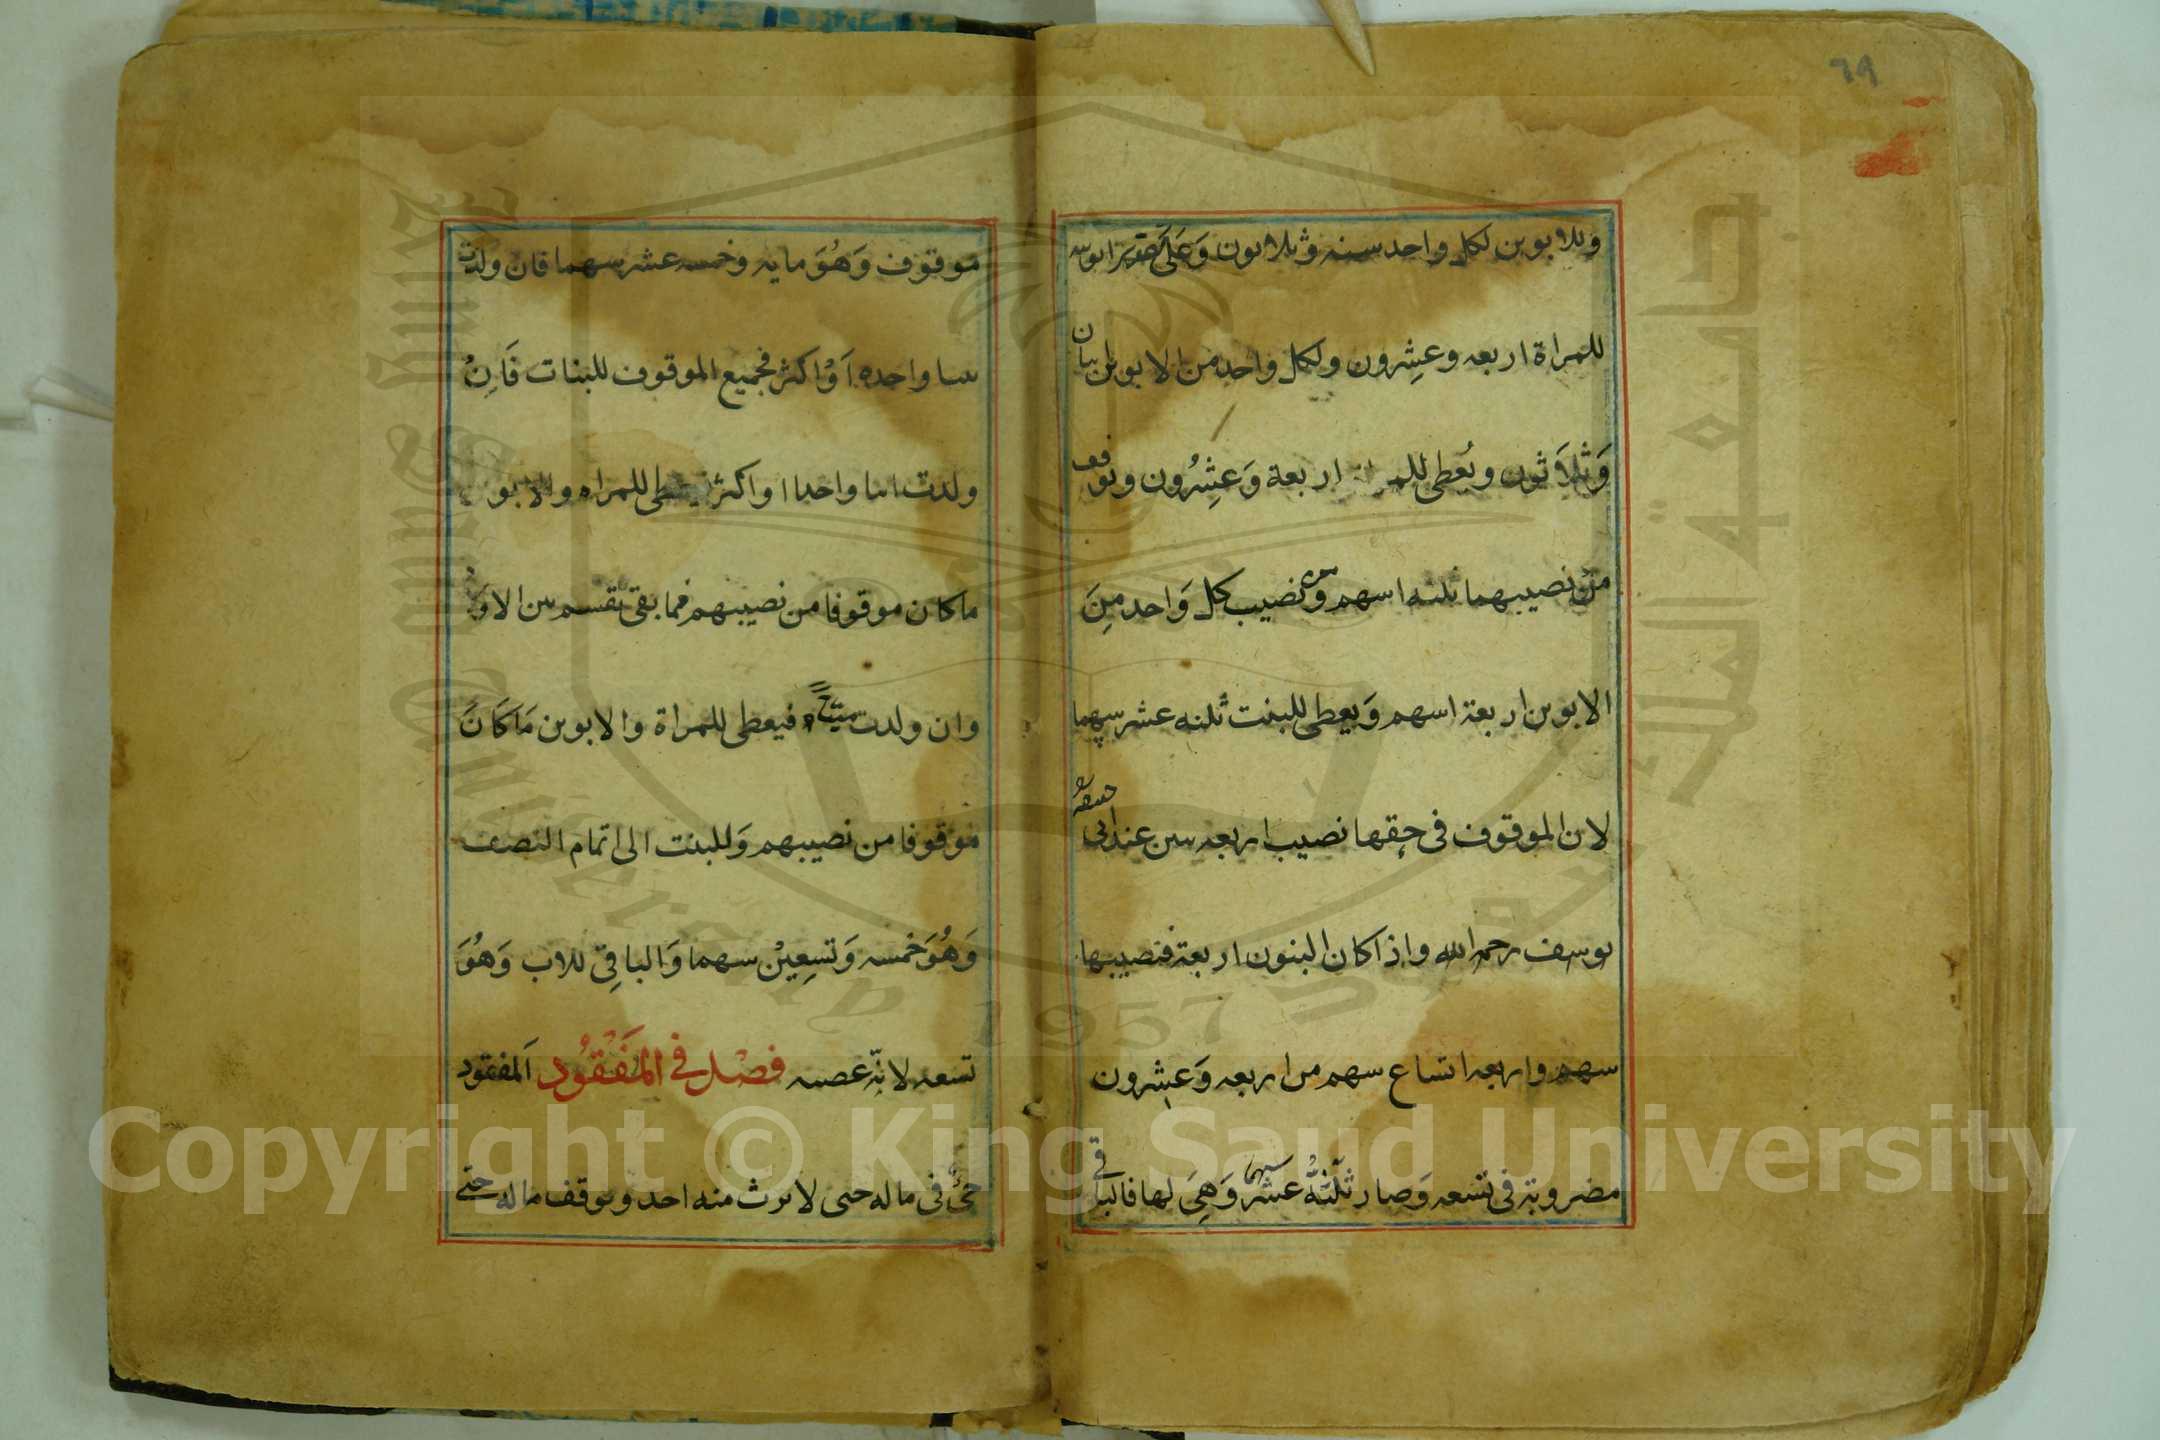 ٦٩
وللابوين لكل واحد ستة وثلاثون وَعَلَى تقدير انوثته
للمراة اربعه وعشِرون ولكل واحد من الابوين اثنان
وَثلاَثون ويُعطى للمراة اربعة وَعشِرُون وتوقف
من نصيبهما ثلثه اسهم ومن نصيب كل وَاحد مِنَ
الابوين اربعة اسهم وَيعطى للبنت ثلثه عشر سهما
لان الموقوف فى حقها نصيب اربعه بنين عند ابى حنيفة
يوسف رحمه الله واذا كان البنون اربعة فنصيبها
سهم واربعه اتساع سهم من اربعه وَعشرون
مضروبة فى تسعه وَصار ثلثَةُ عشر سهما وَهِىَ لها فالباقى
موقوف وَهُوَ مايه وخمسه عشر سهما فان ولدت
بنتا واحده اَوْ اكثر فجميع الموقوف للبنات فَاِنْ
ولدت ابنا واحدا او اكثر يعطى للمراه والابوين
ما كان موقوفا من نصيبهم فما بقى تقسم بين الاولاد
وان ولدت ميتا فيعطى للمراة والابوين مَا كَانَ
موقوفا من نصيبهم وَللبنت الى اتمام النصف
وَهُوَ خمسه وَتسعِيْن سهما وَالباقِى للاب وَهُوَ
تسعه لانّه عصبه فصْل فى المَفْقُود اَلمفقود
حىٌّ فى ماله حتى لا يرث منه احد ويوقف ماله حتى
Copyright © King Saud University
جامعة الملك سعود
King Saud University
1957